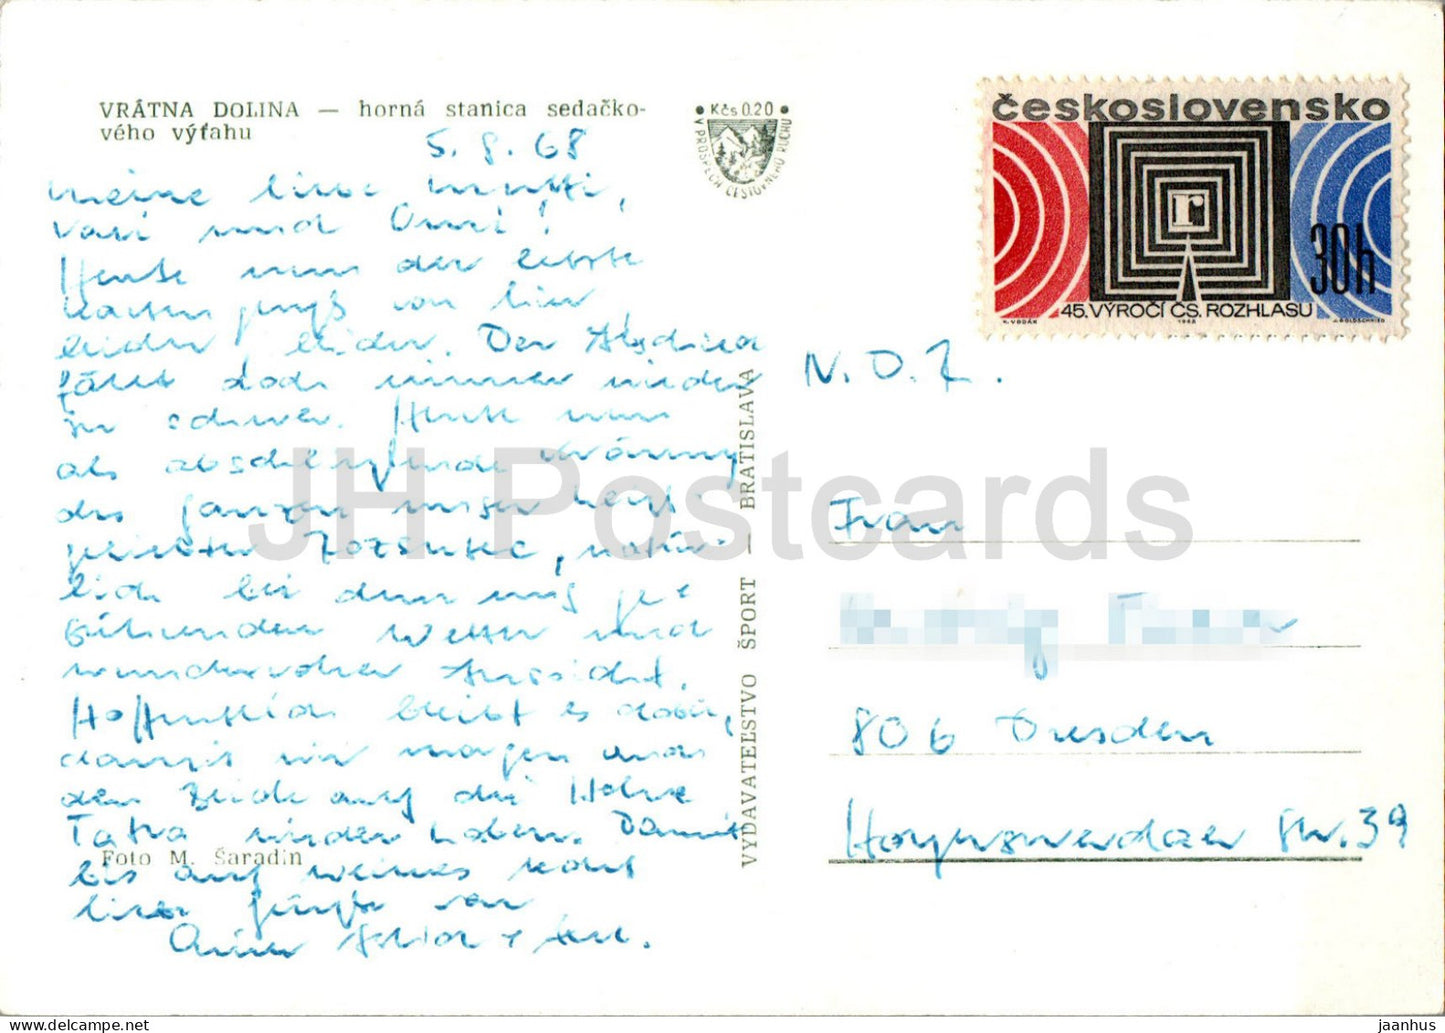 VRÁTNA DOLINA — horná stanica sedačko-
vého výťahu
5. 8. 68
Meine liebe Mutti,
Vati und Omi!
Heute nun der letzte
Kartengruß von hier
leider leider. Der Abschied
fällt doch immer wieder
so schwer. Heute nun
als abschließende Krönung
des ganzen unser heiß-
geliebter Rozsutec, natür-
lich bei dem nug ge-
bührenden Wetter und
wundervoller Aussicht.
Hoffentlich bleibt es dabei,
damit wir morgen noch
den Blick auf die Hohe
Tatra haben. Damit
bis auf weiteres
liebe Grüße von
Foto M. Šaradín
• Kčs 0.20 •
V PROSPECH CESTOVNÉHO RUCHU
československo
r
30h
45. VÝROČÍ ČS. ROZHLASU
1968
VYDAVATEĽSTVO ŠPORT — BRATISLAVA
N. D. R.
Frau
806 Dresden
Hoyerswerdaer Str. 39
JH Postcards
delcampe.net
jaanhus